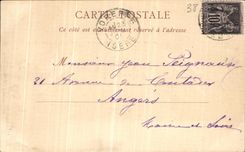 38
CARTE POSTALE
Ce côté est exclusivement réservé à l'adresse
ISÈRE
10
Monsieur Jean Peignaux
21 Avenue de Contades
Angers
Maine et Loire